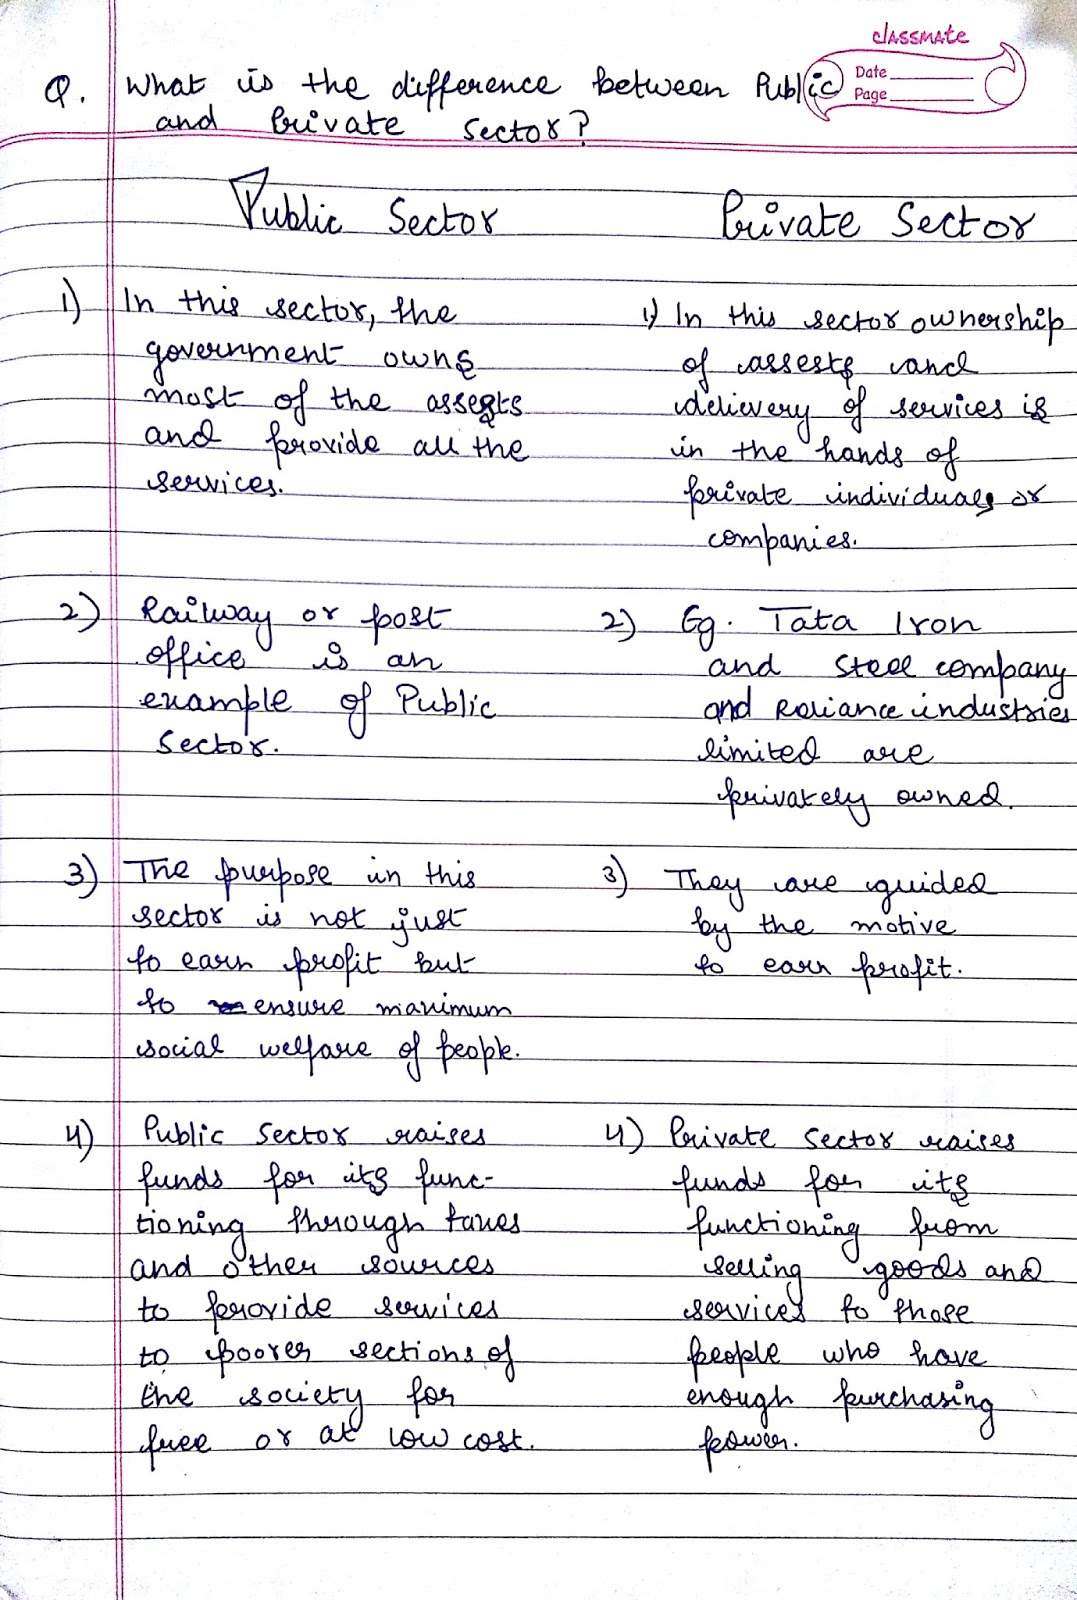 classmate
Date
Page
Q. What is the difference between Public
and Private sector?
Public Sector
1) In this sector, the
government owns
most of the assests
and provide all the
services.
2) Railway or post
office is an
example of Public
Sector.
3) The purpose in this
sector is not just
to earn profit but
to ensure maximum
social welfare of people.
4) Public Sector raises
funds for its func-
tioning through taxes
and other sources
to provide services
to poorer sections of
the society for
free or at low cost.
Private Sector
1) In this sector ownership
of assests and
delievery of services is
in the hands of
private individuals or
companies.
2) Eg. Tata Iron
and Steel company
and Reliance industries
limited are
privately owned.
3) They are guided
by the motive
to earn profit.
4) Private Sector raises
funds for its
functioning from
selling goods and
services to those
people who have
enough purchasing
power.